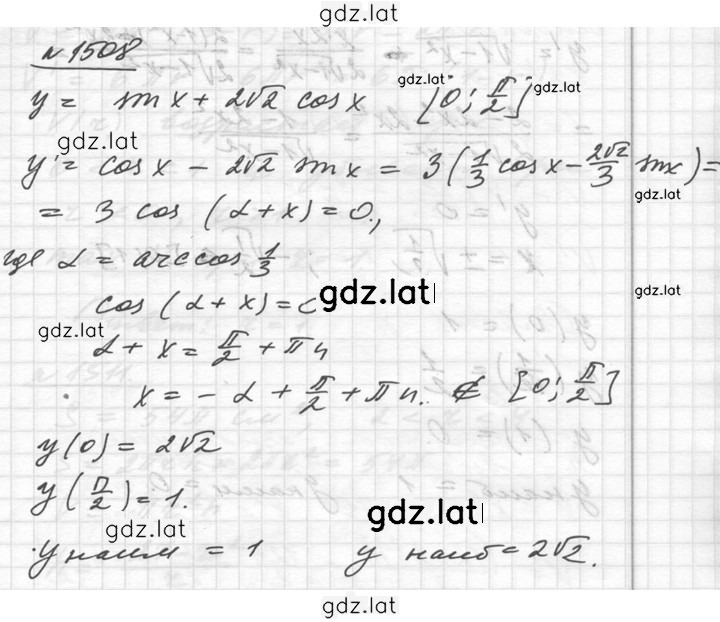 gdz.lat
№ 1508
y = sin x + 2√2 cos x [0; π/2]
gdz.lat gdz.lat
gdz.lat
y' = cos x − 2√2 sin x = 3(1/3 cos x − 2√2/3 sin x) =
gdz.lat
= 3 cos (α + x) = 0,
где α = arccos 1/3
gdz.lat gdz.lat
cos (α + x) =
gdz.lat
α + x = π/2 + πn
x = − α + π/2 + πn. ∉ [0; π/2]
y(0) = 2√2
y(π/2) = 1.
gdz.lat gdz.lat
y наим = 1 y наиб = 2√2.
gdz.lat